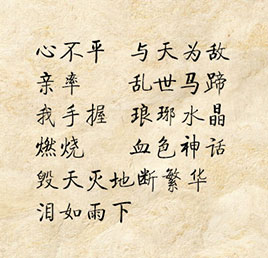 心不平 与天为敌
亲率 乱世马蹄
我手握 琅琊水晶
燃烧 血色神话
毁天灭地断繁华
泪如雨下